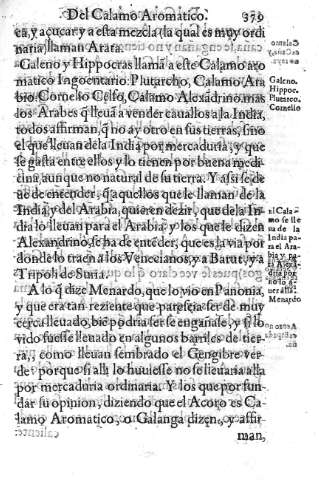 Del Calamo Aromatico. 379
ca, y açucar y a esta mezcla (la qual es muy ordi
naria) llaman Arata.
Galeno y Hippocras llamā a este Calamo aro
matico Ingoentario. Plutarcho, Calamo Ara
bio. Cornelio Celso, Calamo Alexādrino. mas
los Arabes q̄ lleuā a vender cauallos a la India,
todos affirman, q̄ no ay otro en sus tierras, sino
el que lleuan dela India por mercaduria, y que
se gasta entre ellos y lo tienen por buena medi
cina, aunque no natural de su tierra. Y assi se de
ue de entender, q̄ a aquellos que le llaman de la
India, y del Arabia, quieren dezir, que dela In
dia lo lleuan para el Arabia: y los que le dizen
Alexandrino, se ha de entēder, que es la via por
donde lo traen a los Venecianos, y a Barut, y a
Tripoli de Suria.
A lo q̄ dize Menardo, que lo vio en Panonia,
y que era tan reziente que parescia ser de muy
cerca lleuado, biē podria ser se engañase, y si lo
vido fuesse lleuado en algunos barriles de tier-
ra, como lleuan sembrado el Gengibre ver
de: porque si alli lo huuiesse no se lleuaria alla
por mercaduria ordinaria. Y los que por fun
dar su opinion, diziendo que el Acoro es Ca
lamo Aromatico, o Galanga dizen, y affir
man,
Galeno.
Hippor.
Plutarco.
Cornelio
el Cala-
mo se lle
ua de la
India pa
ra el Ara-
bia y pa
Menardo